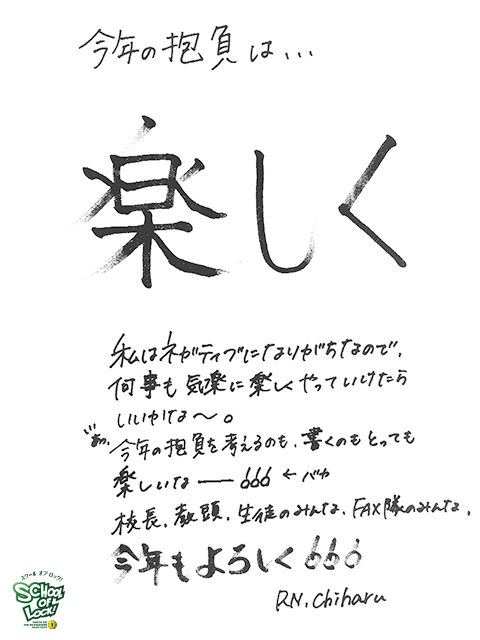 今年の抱負は...
楽しく
私はネガティブになりがちなので、
何事も気楽に楽しくやっていけたら
いいかな〜。
あっ、今年の抱負を考えるのも、書くのもとっても
楽しいな──666 ← バカ
校長、教頭、生徒のみんな、FAX隊のみんな、
今年もよろしく666
RN.Chiharu
スクール オブ ロック!
SCHOOL
OF
LOCK!